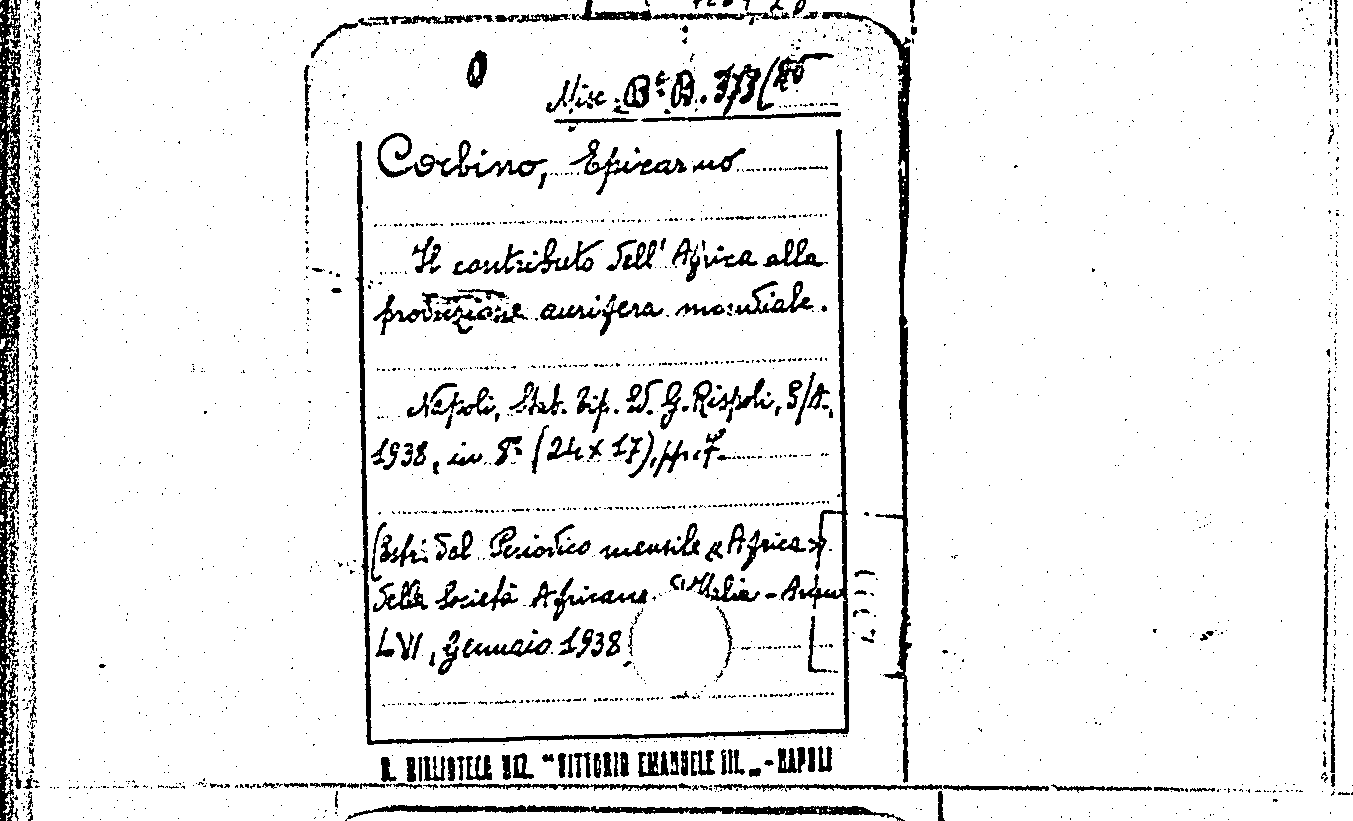 Misc. Bª B. 373(
Corbino, Epicarmo
Il contributo dell'Africa alla
produzione aurifera mondiale.
Napoli, Stab. Tip. Ed. G. Rispoli, S/A.,
1938, in 8º (24 x 17), pp. 7.
(Estr. dal Periodico mensile «Africa»
della Società Africana d'Italia - Anno
LVI, Gennaio 1938
R. BIBLIOTECA NAZ. "VITTORIO EMANUELE III. „ - NAPOLI